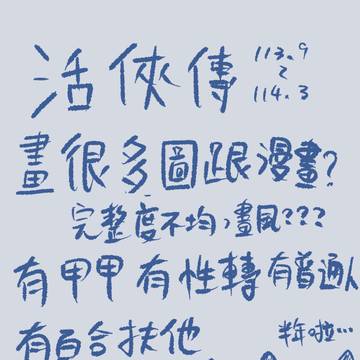 活俠傳
113.9
~
114.3
畫很多圖跟漫畫?
完整度不均,畫風???
有甲甲有性轉有普通人
有百合扶他
半年啦…